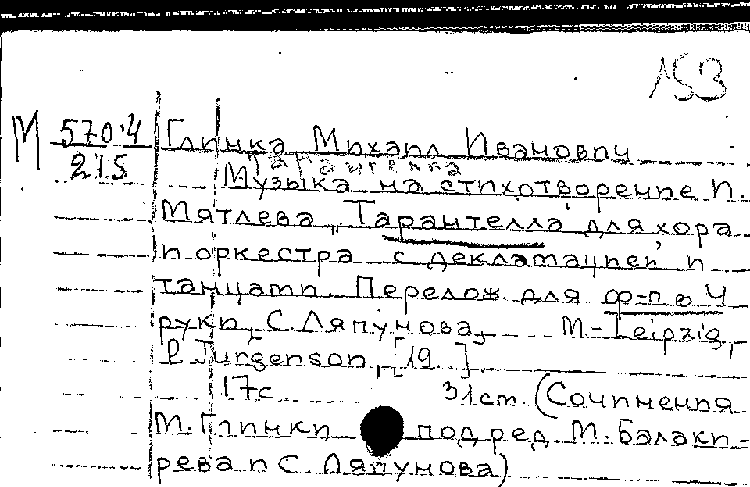 153
М 570.4 Глинка Михаил Иванович
215 Тарантелла
Музыка на стихотворение И.
Мятлева „Тарантелла" для хора
и оркестра с декламацией и
танцами. Перелож для ф-п в 4
руки, С. Ляпунова, М-Leipzig,
P. Jurgenson, [19 ]
17с 31ст. (Сочинения
М. Глинки под ред. М. Балаки-
рева и С. Ляпунова)